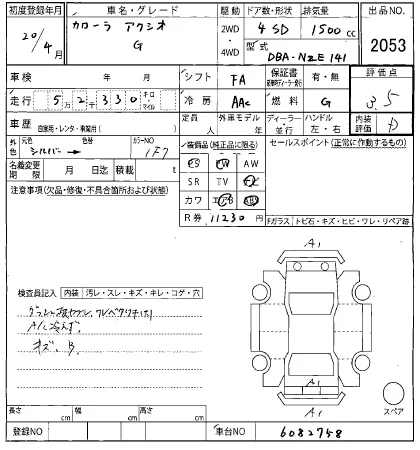 初度登録年月 車名・グレード 駆動 ドア数・形状 排気量 出品NO.
20/4月 カローラ アクシオ G 2WD・4WD 4 SD 1500 cc 2053
型式 DBA-NZE141
車検 年 月 シフト FA 保証書 有・無 評価点
走行 5万2千330 キロ・マイル 冷房 AAC 燃料 G 3.5
車歴 自家用・レンタ・事業用( ) 定員 人 外車モデル 年 ディーラー・並行 ハンドル 左・右 内装評価 D
外色 元色 シルバー 色替 カラーNO 1F7 装備品(純正品に限る) セールスポイント(正常に作動するもの)
PS PW AW
名義変更期限 月 日迄 積載 t SR TV
注意事項(欠品・修復・不具合箇所および状態) カワ エアB
R券 11230 円 Fガラス トビ石・キズ・ヒビ・ワレ・リペア跡
A1
検査員記入 内装 汚レ・スレ・キズ・キレ・コゲ・穴
A/C冷えず.
キズ、B
A1
A1
スペア
長さ cm 幅 cm 高さ cm
登録NO 車台NO 6082748